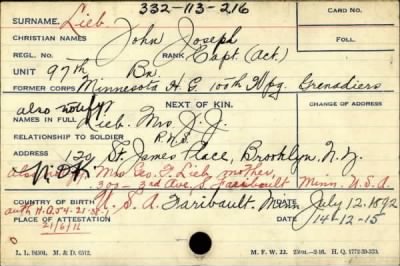 332-113-216
SURNAME, Lieb. CARD NO.
CHRISTIAN NAMES John Joseph FOLL.
REGL. NO. RANK Capt. (Act.)
UNIT 97th Bn.
FORMER CORPS Minnesota H. G. 100th Wpg. Grenadiers
also notify NEXT OF KIN. CHANGE OF ADDRESS
NAMES IN FULL Lieb. Mrs. J. J.
RELATIONSHIP TO SOLDIER
ADDRESS 129 St. James Place, Brooklyn, N.Y.
also Mrs Geo. F. Lieb, mother,
300-3rd Ave. S. Faribault Minn. U.S.A.
COUNTRY OF BIRTH U. S. A. Faribault, Minn. DATE July 12, 1892
PLACE OF ATTESTATION DATE 14-12-15
21/6/16
L. L. M. & D. 6512. M. F. W. 22. H. Q. 1772-39-333.